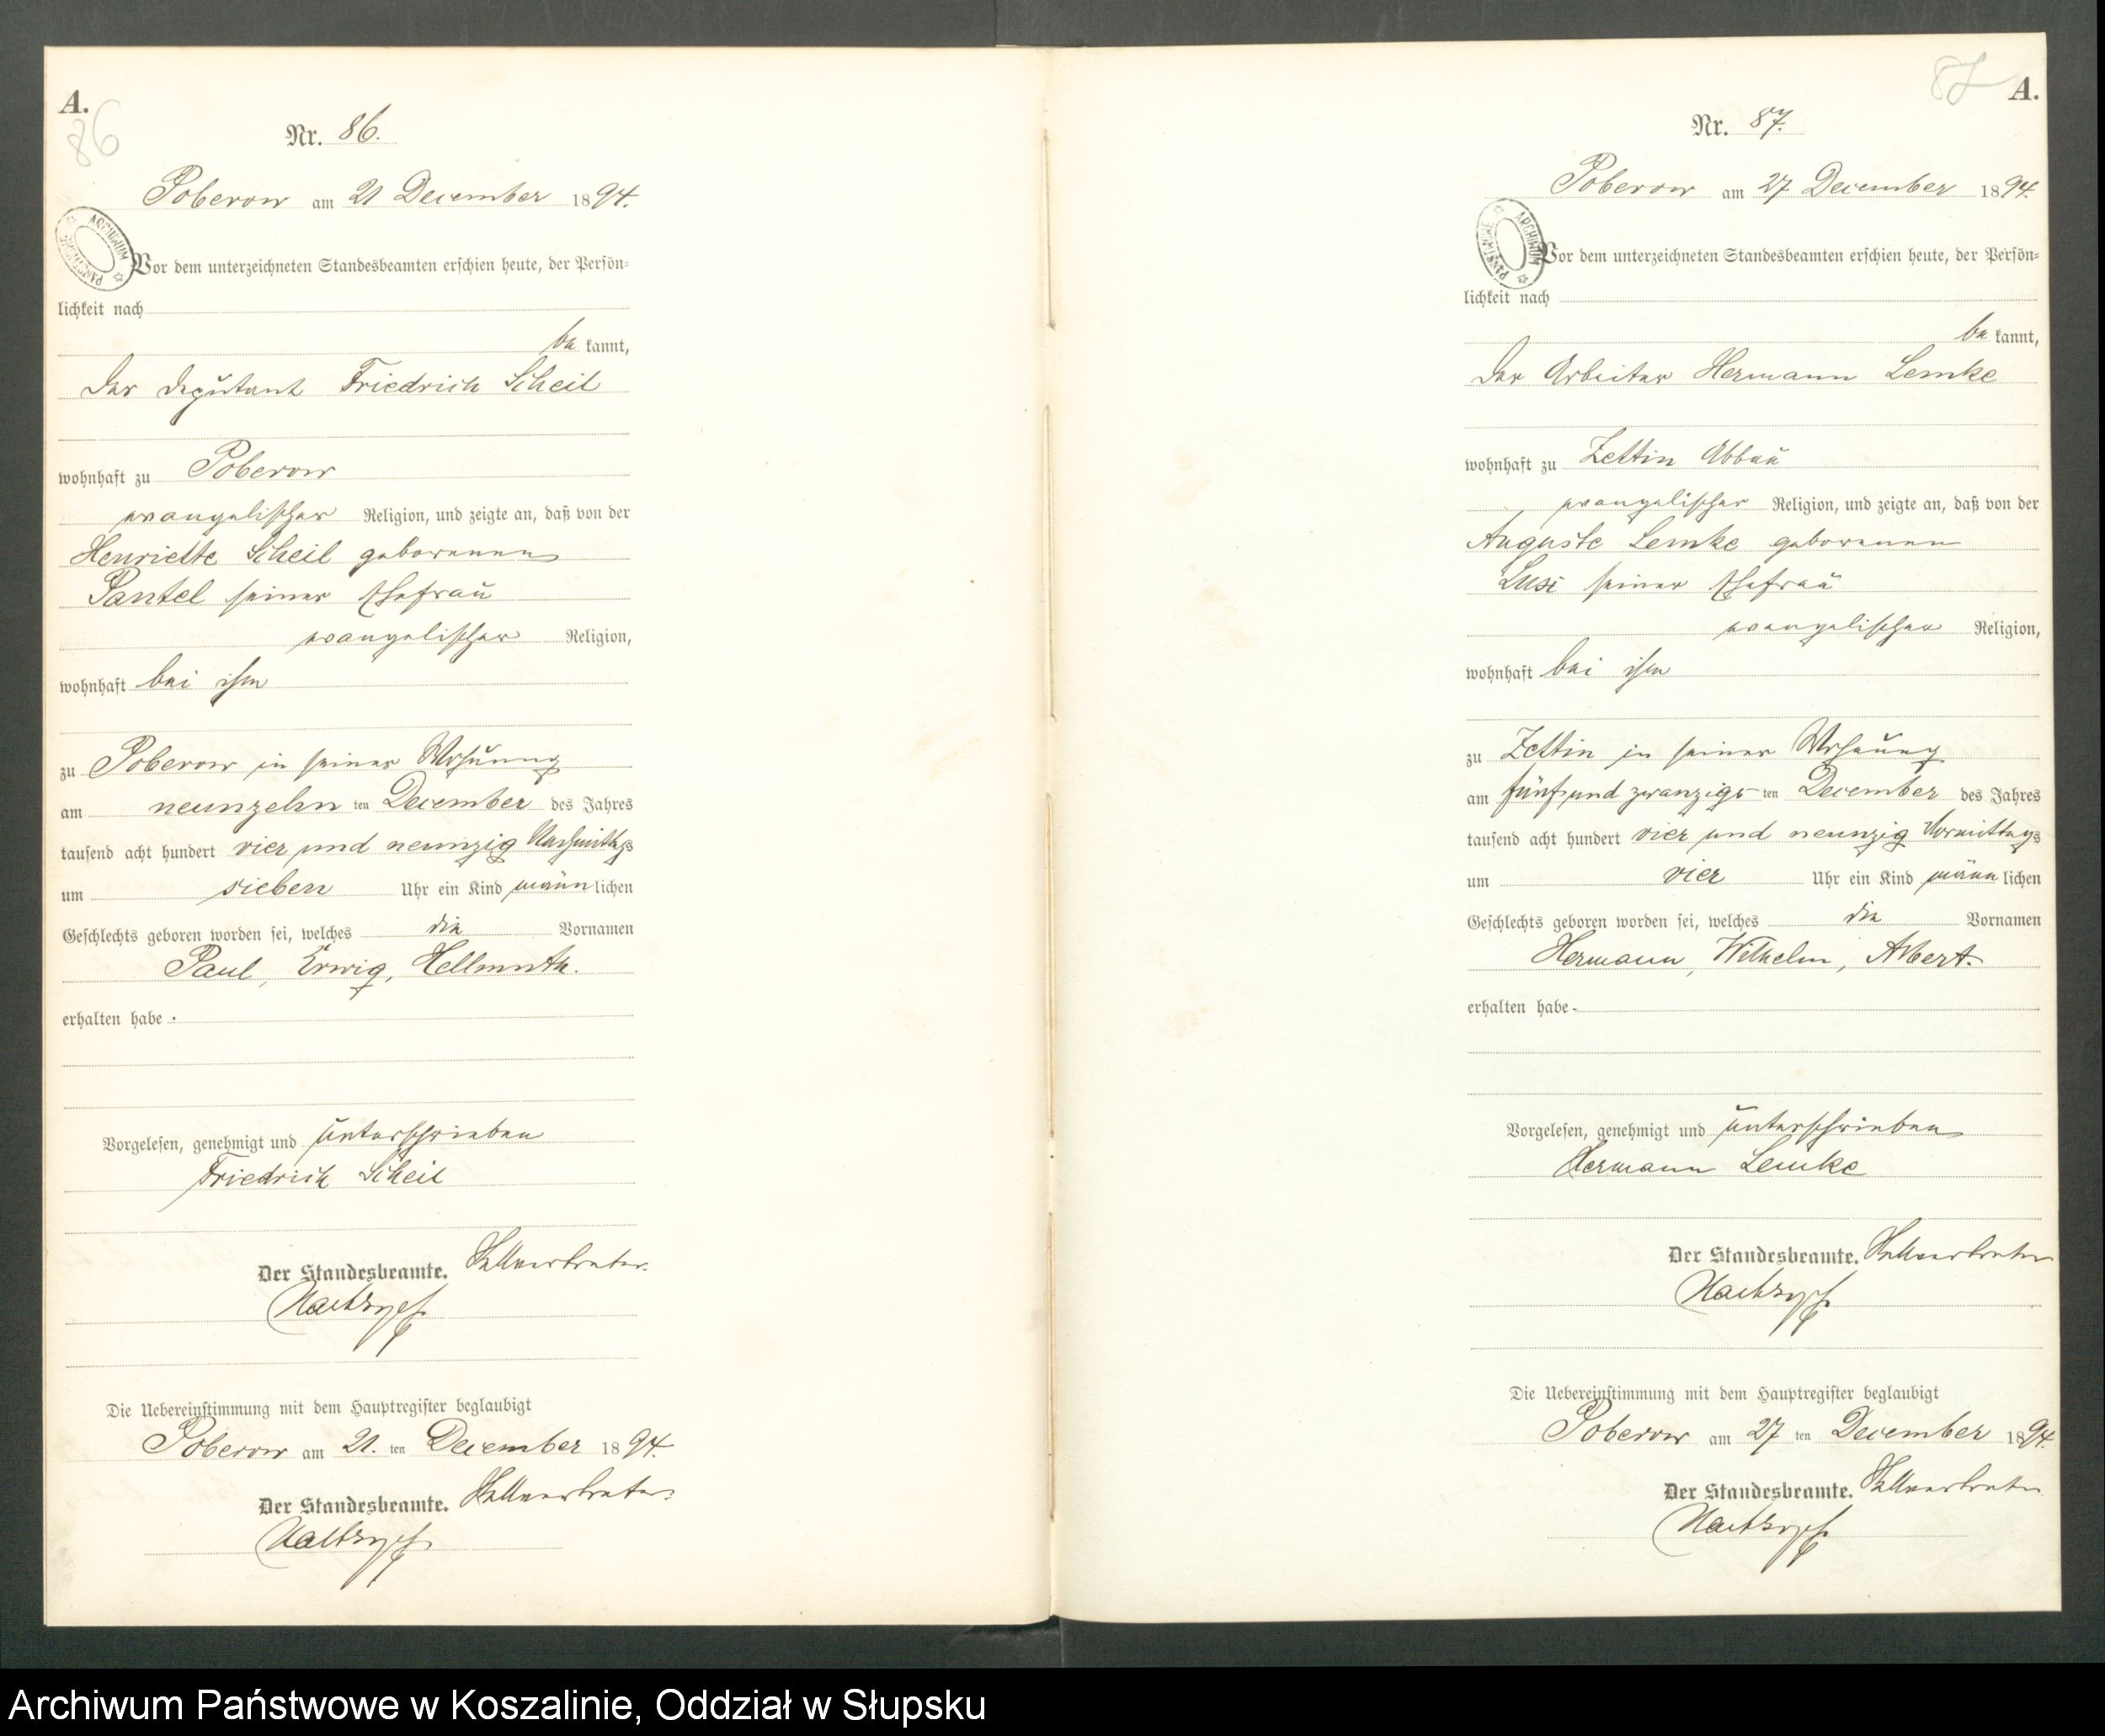 A.
86
Nr. 86.
Poberow am 21 December 1894.
ARCHIWUM PAŃSTWOWE
Vor dem unterzeichneten Standesbeamten erschien heute, der Persön-
lichkeit nach
be kannt,
der Deputant Friedrich Scheil
wohnhaft zu Poberow
evangelischer Religion, und zeigte an, daß von der
Henriette Scheil geborenen
Pantel seiner Ehefrau
evangelischer Religion,
wohnhaft bei ihm
zu Poberow in seiner Wohnung
am neunzehn ten December des Jahres
tausend acht hundert vier und neunzig Nachmittags
um sieben Uhr ein Kind männ lichen
Geschlechts geboren worden sei, welches die Vornamen
Paul, Erwig, Hellmuth.
erhalten habe.
Vorgelesen, genehmigt und unterschrieben
Friedrich Scheil
Der Standesbeamte. Stellvertreter.
Die Uebereinstimmung mit dem Hauptregister beglaubigt
Poberow am 21. ten December 1894.
Der Standesbeamte. Stellvertreter.
87 A.
Nr. 87.
Poberow am 27 December 1894.
ARCHIWUM PAŃSTWOWE
Vor dem unterzeichneten Standesbeamten erschien heute, der Persön-
lichkeit nach
be kannt,
der Arbeiter Hermann Lemke
wohnhaft zu Zettin Abbau
evangelischer Religion, und zeigte an, daß von der
Auguste Lemke geborenen
Lusi seiner Ehefrau
evangelischer Religion,
wohnhaft bei ihm
zu Zettin in seiner Wohnung
am fünf und zwanzigs ten December des Jahres
tausend acht hundert vier und neunzig Vormittags
um vier Uhr ein Kind männ lichen
Geschlechts geboren worden sei, welches die Vornamen
Hermann, Wilhelm, Albert.
erhalten habe.
Vorgelesen, genehmigt und unterschrieben
Hermann Lemke
Der Standesbeamte. Stellvertreter
Die Uebereinstimmung mit dem Hauptregister beglaubigt
Poberow am 27 ten December 1894.
Der Standesbeamte. Stellvertreter
Archiwum Państwowe w Koszalinie, Oddział w Słupsku